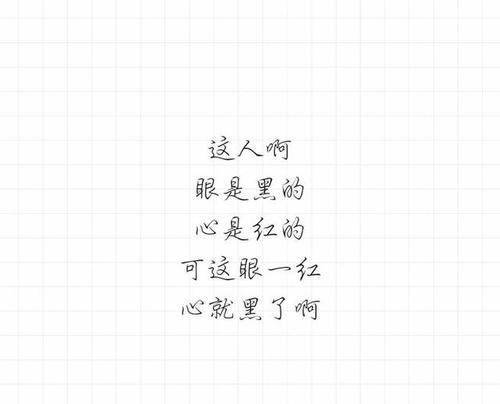 这人啊
眼是黑的
心是红的
可这眼一红
心就黑了啊